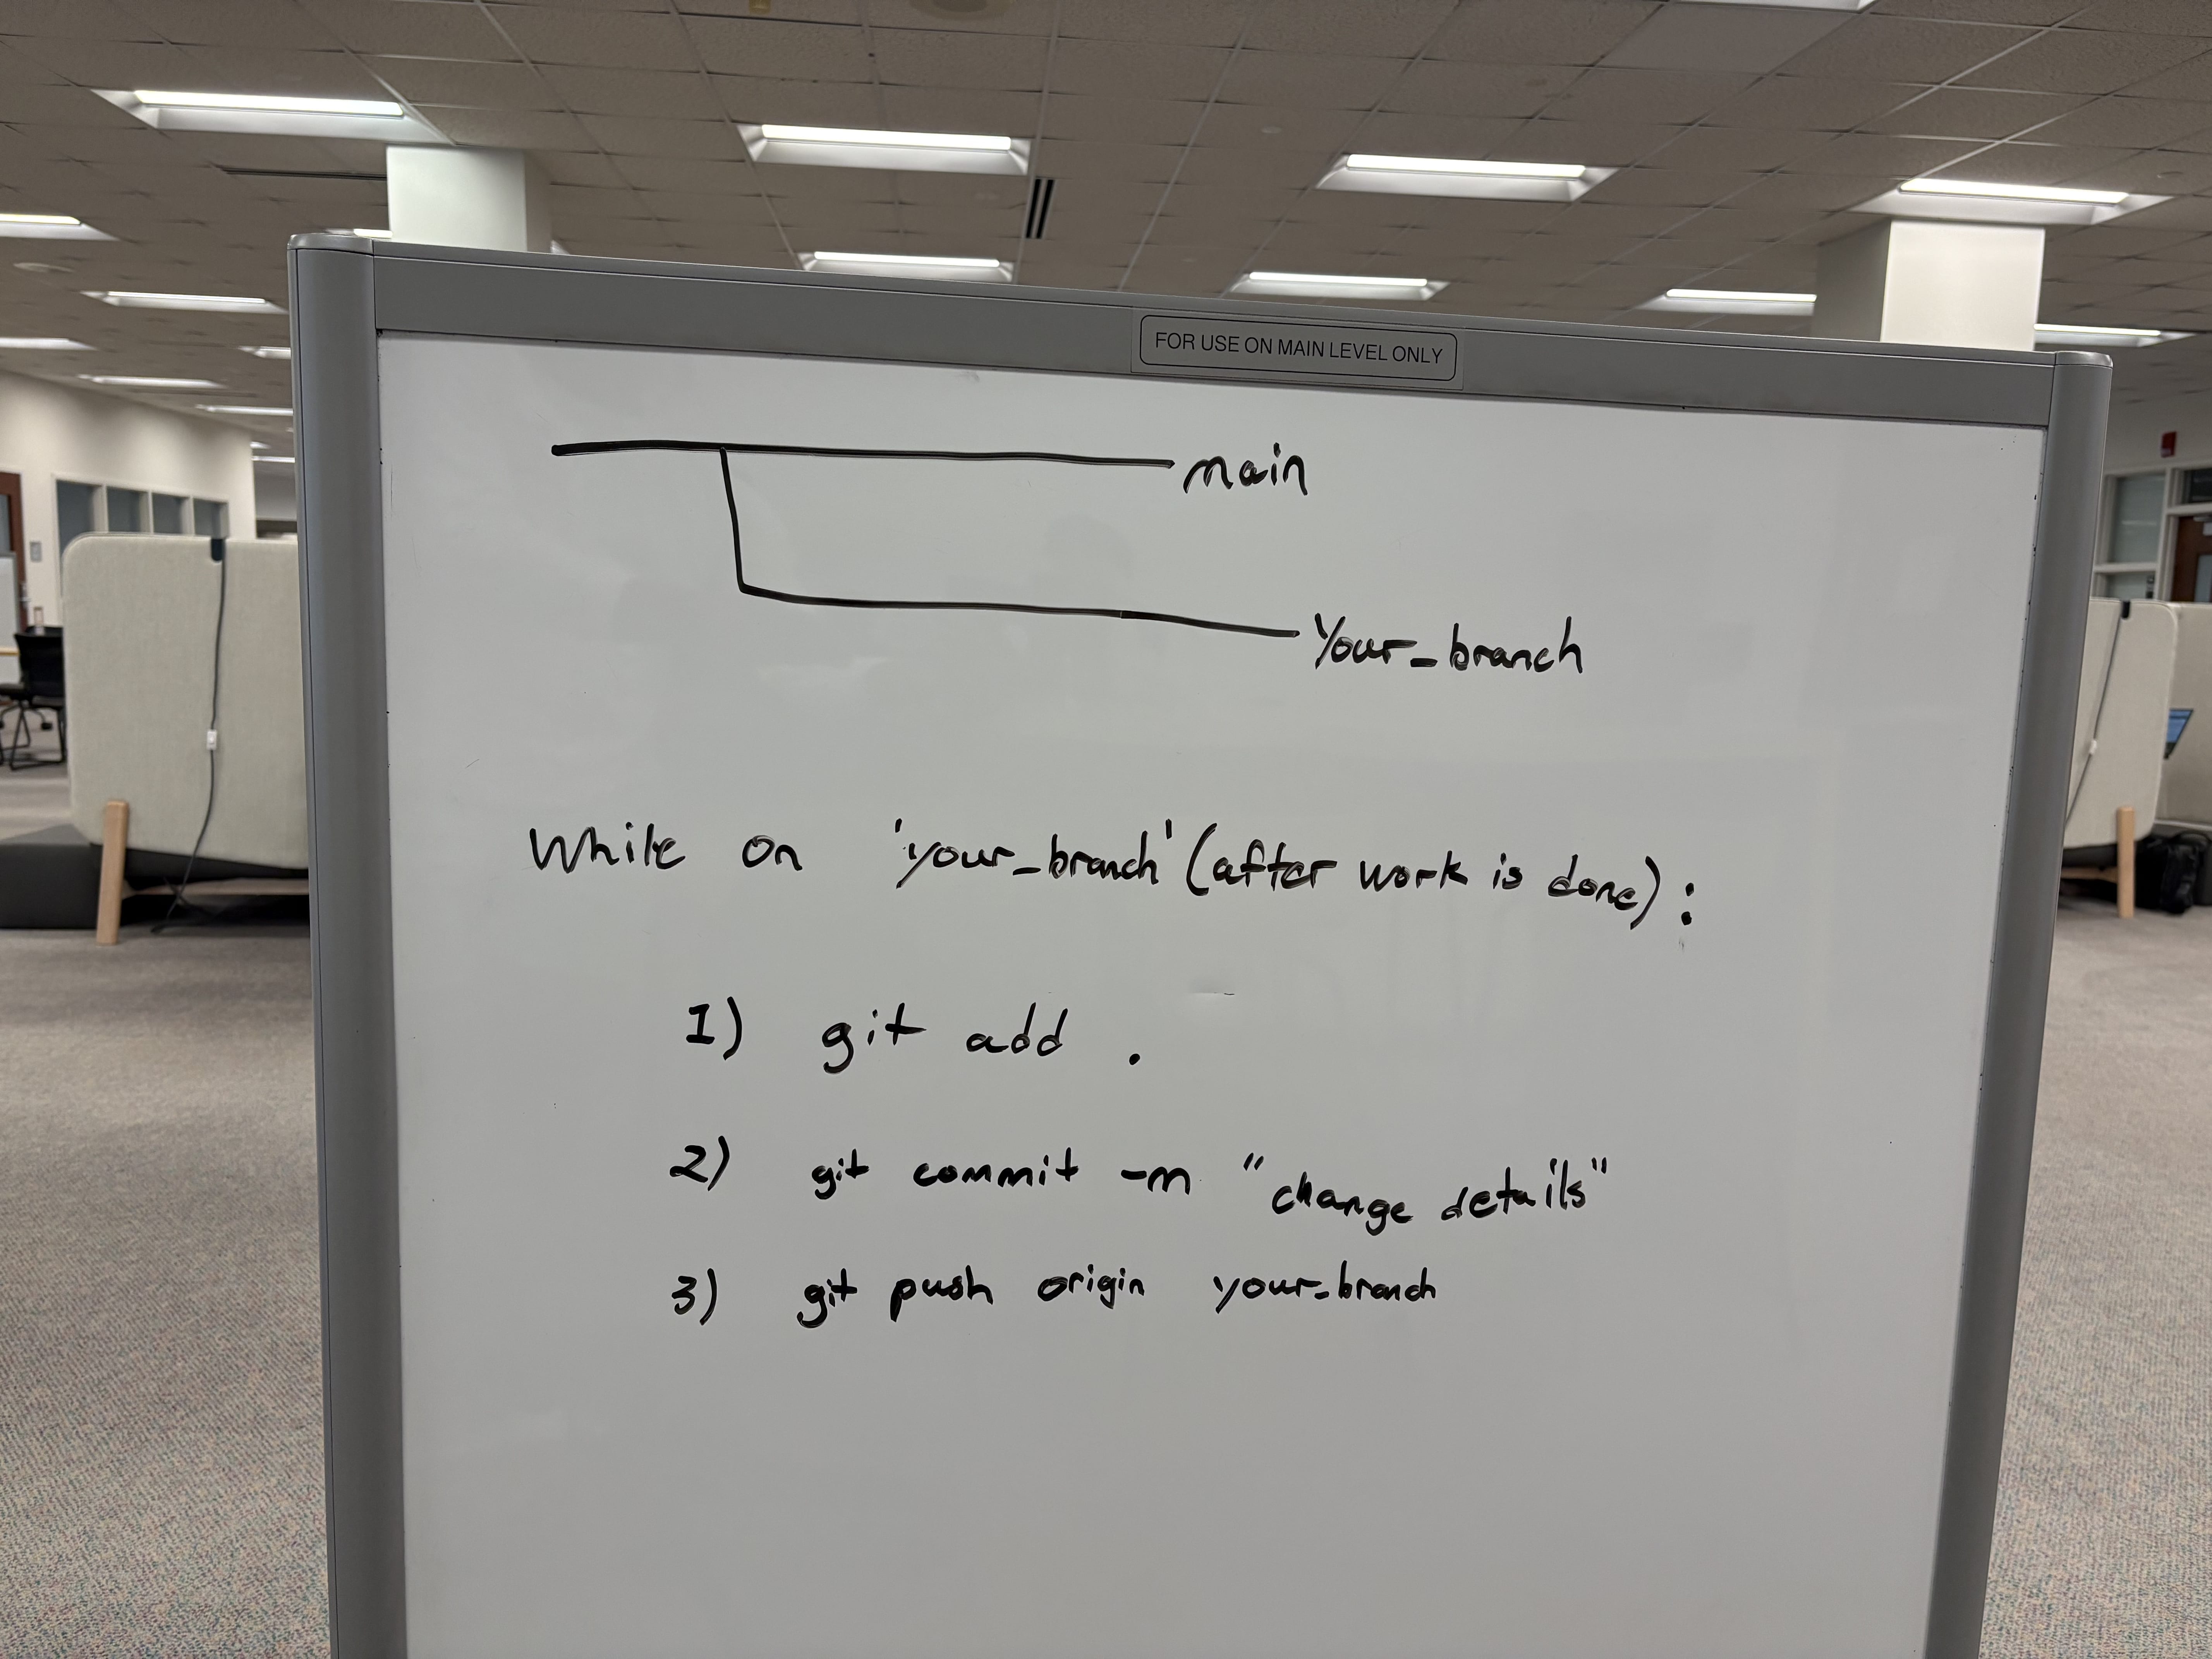 FOR USE ON MAIN LEVEL ONLY
main
Your_branch
While on 'your_branch' (after work is done):
1) git add .
2) git commit -m "change details"
3) git push origin your_branch